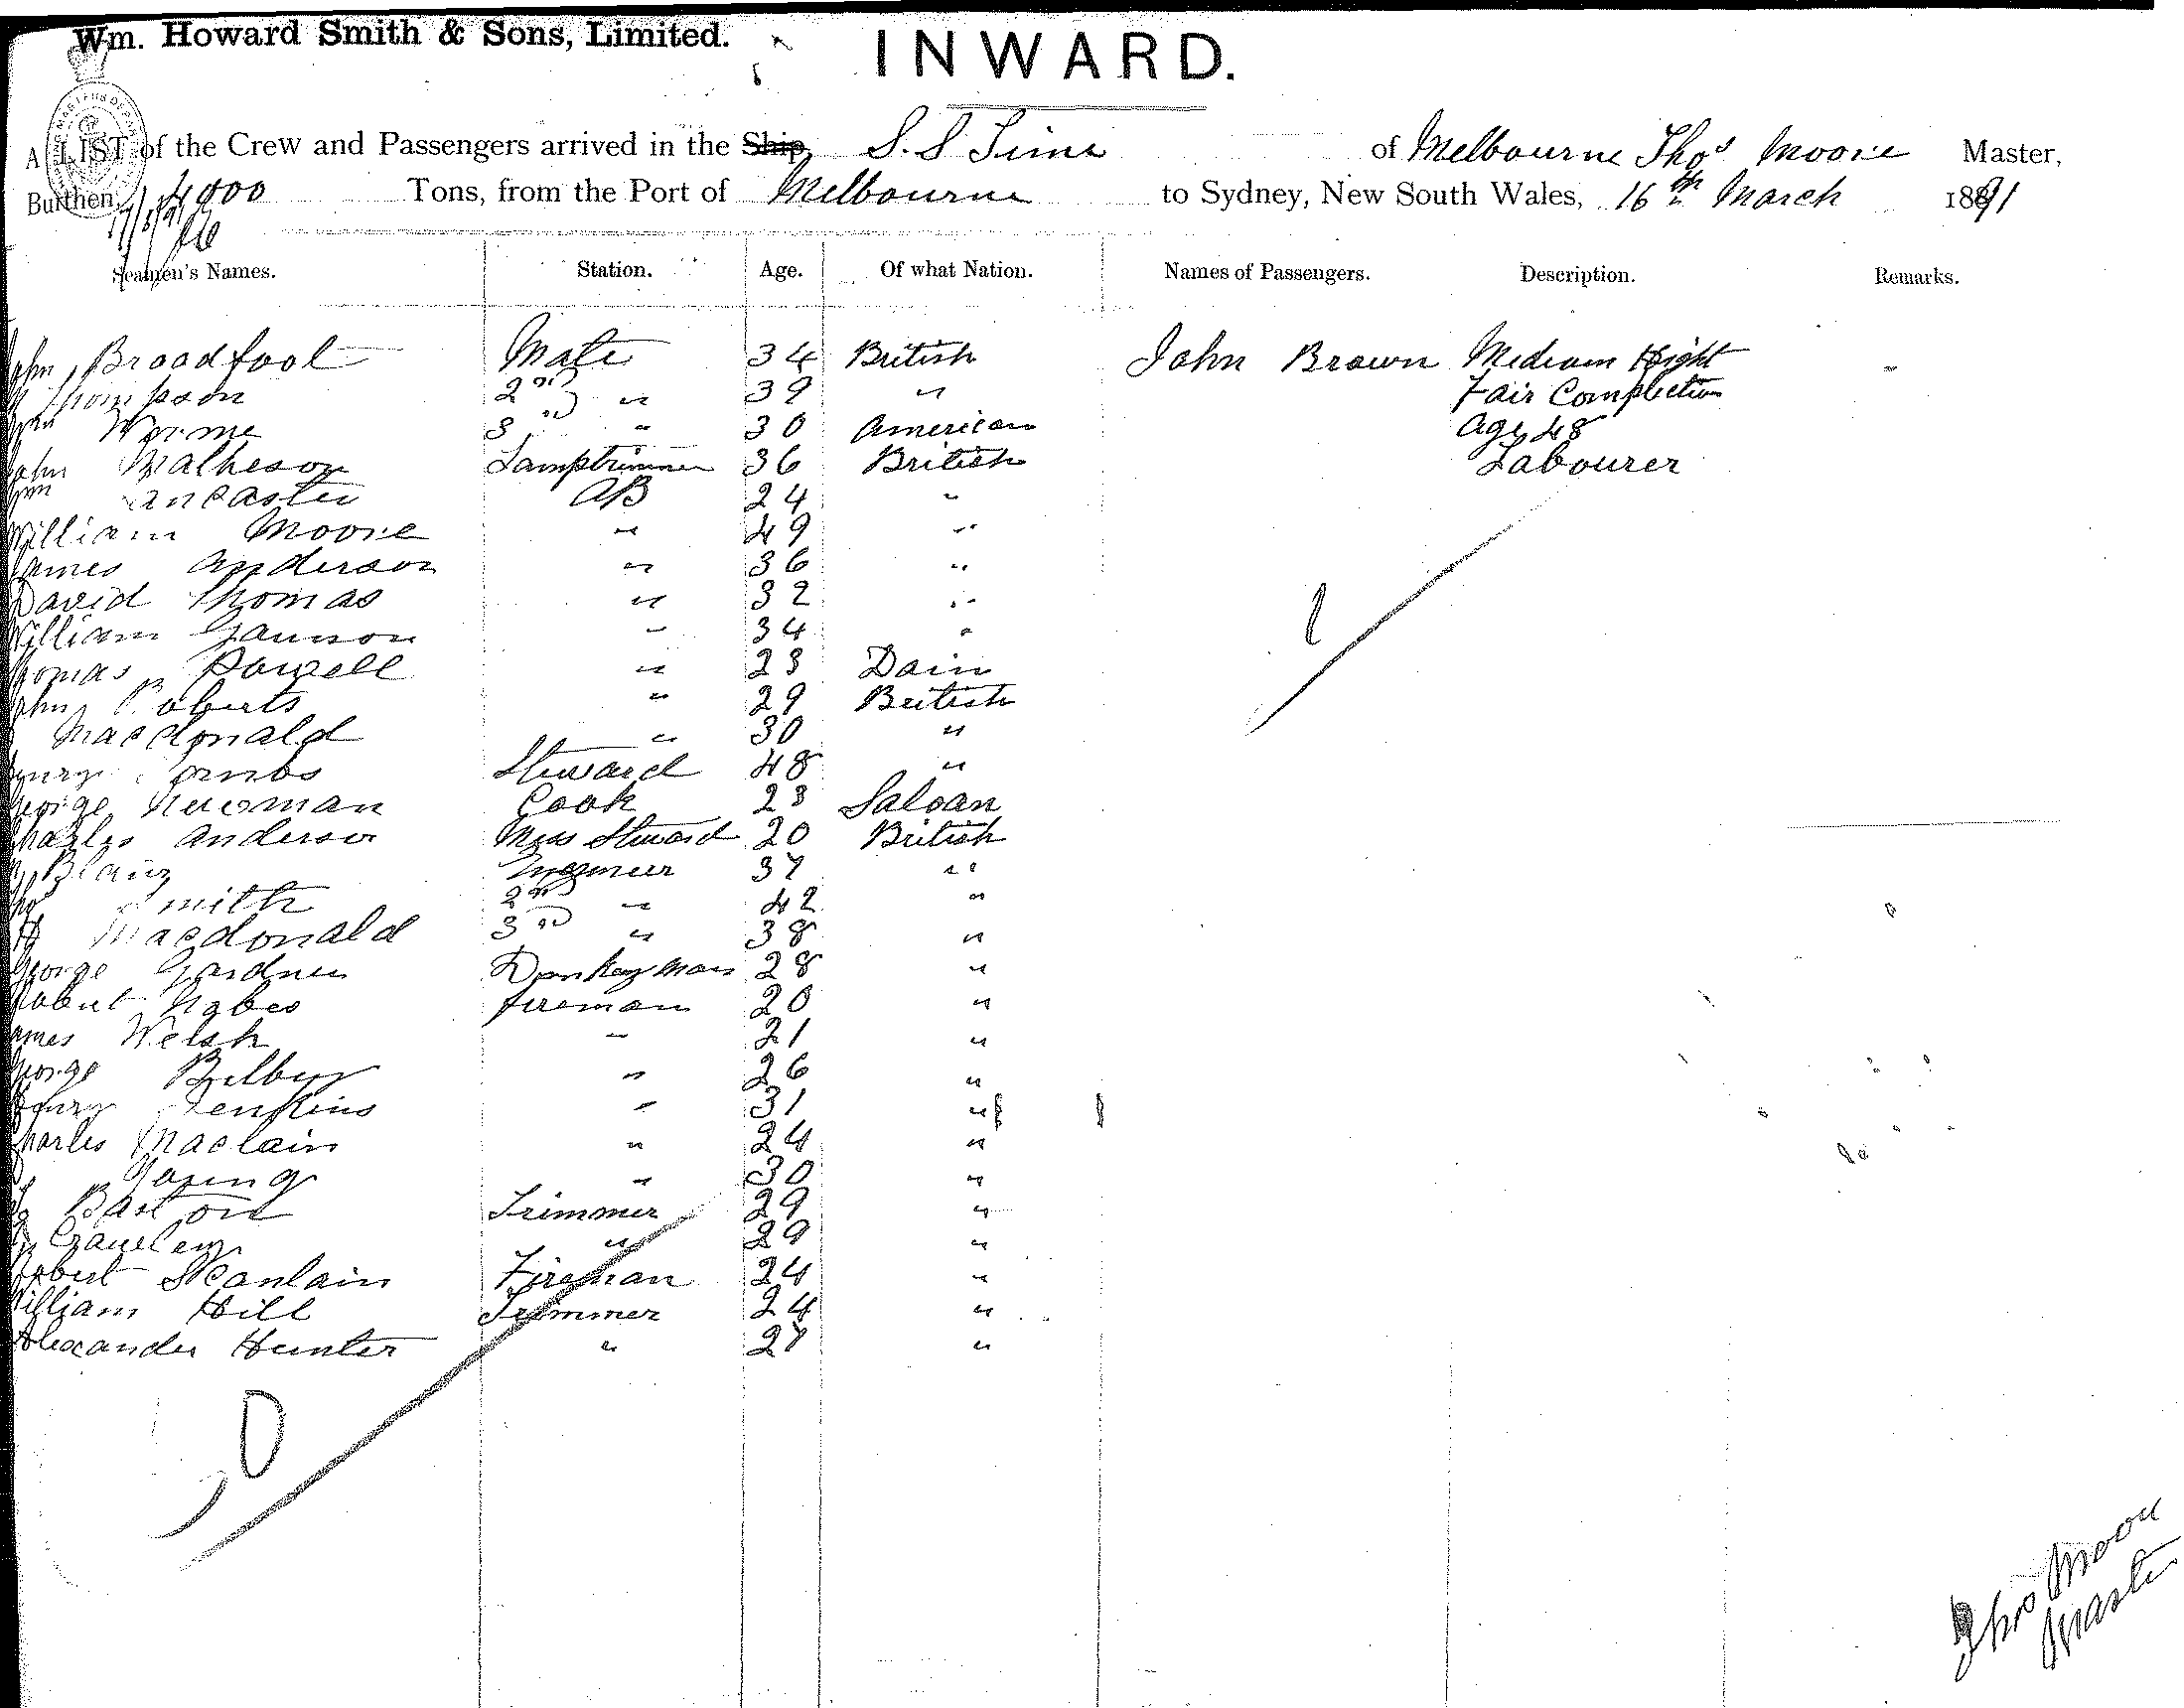 Wm. Howard Smith & Sons, Limited.
INWARD.
A LIST of the Crew and Passengers arrived in the Ship, S.S Time of Melbourne Thos Moore Master,
Burthen, 4000 Tons, from the Port of Melbourne to Sydney, New South Wales, 16th March 1891
Seamen's Names. Station. Age. Of what Nation. Names of Passengers. Description. Remarks.
John Broadfoot Mate 34 British John Brown Medium Hight
Thompson 2nd " 39 " Fair Complection
3rd " 30 American Age 48
John Matheson Lamptrimmer 36 British Labourer
Lancaster AB 24 "
William Moore " 49 "
James Anderson " 36 "
David Thomas " 32 "
William Gannon " 34 "
Thomas Powell " 23 Dain
John Roberts " 29 British
Macdonald " 30 "
Steward 48 "
George Newman Cook 23 Saloan
Charles Anderson Mess Steward 20 British
Blair Engineer 37 "
Smith 2nd " 42 "
Macdonald 3rd " 38 "
George Gardner Donkeyman 28 "
Robert fireman 20 "
James Welsh " 21 "
George " 26 "
Henry Jenkins " 31 "
Charles Maclain " 24 "
Young " 30 "
Trimmer 29 "
" 29 "
Robert Scanlain Fireman 24 "
William Hill Trimmer 24 "
Alexander Hunter " 27 "
Thos Moore
Master